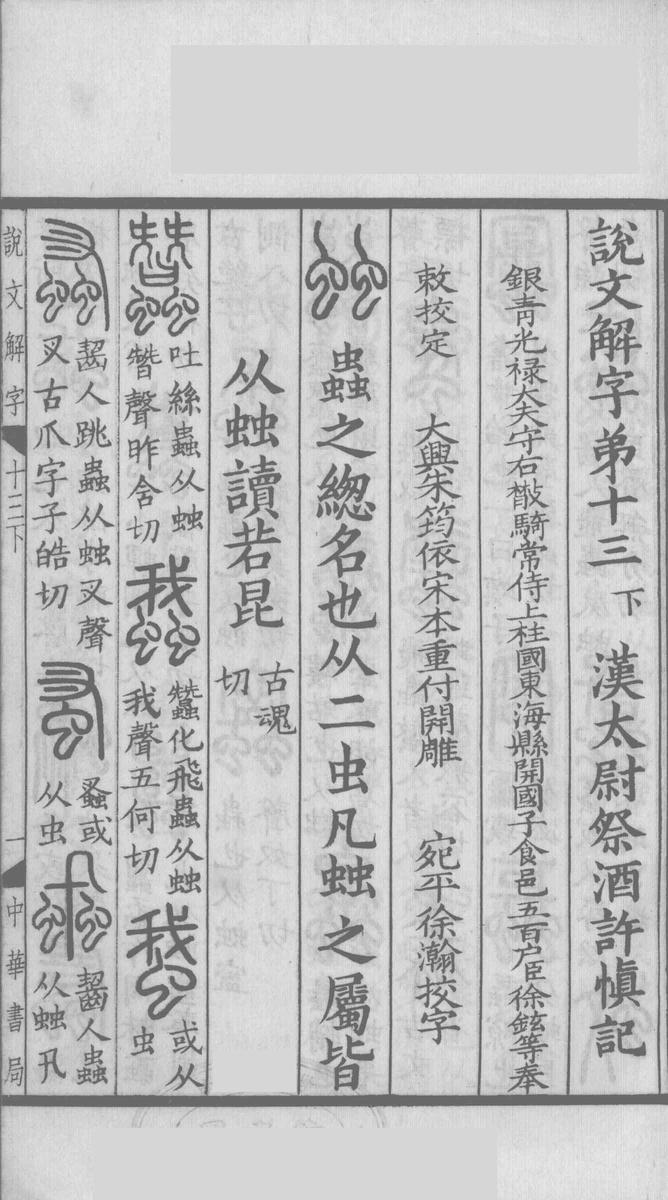 說文解字弟十三 下 漢太尉祭酒許慎記
銀青光祿大夫守右散騎常侍上柱國東海縣開國子食邑五百戶臣徐鉉等奉
敕挍定 大興朱筠依宋本重付開雕 宛平徐瀚挍字
䖵 蟲之緫名也从二虫凡䖵之屬皆
从䖵讀若昆 古魂切
蠶 吐絲蟲从䖵朁聲昨含切 𧓉 蠶化飛蟲从䖵我聲五何切 蛾 或从虫
𧒒 齧人跳蟲从䖵叉聲叉古爪字子皓切 蚤 𧒒或从虫 䖵 齧人蟲从䖵卂
說文解字 十三下 一 中華書局